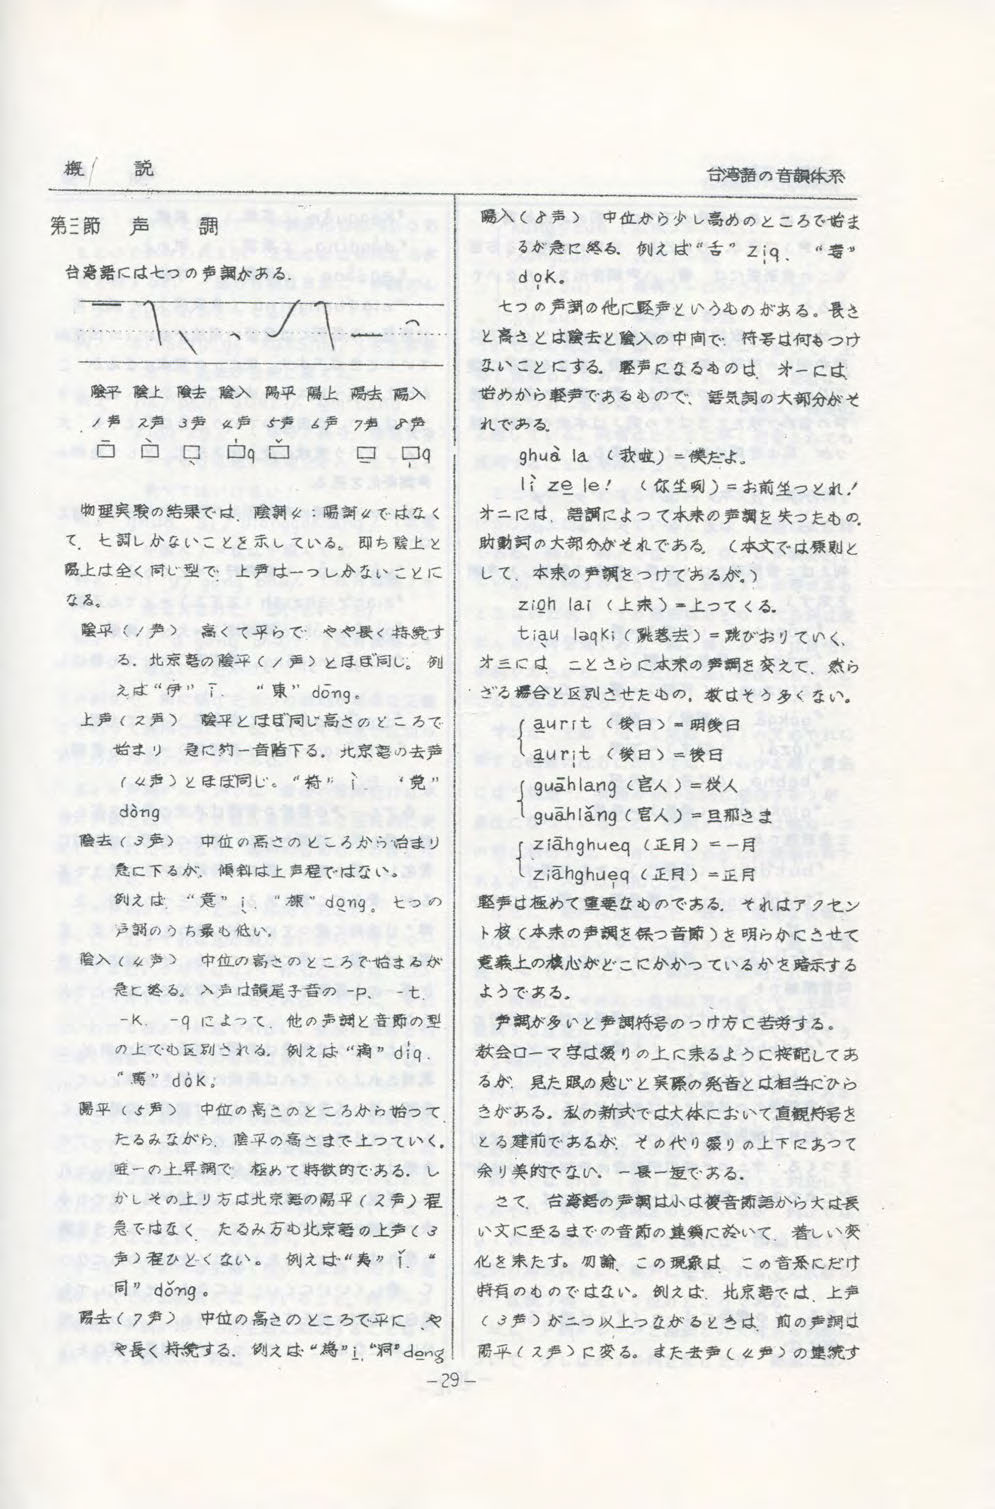 概 説
台湾語の音韻体系
第三節 声 調
台湾語には七つの声調がある.
陰平 陰上 陰去 陰入 陽平 陽上 陽去 陽入
1声 2声 3声 4声 5声 6声 7声 8声
q q
物理実験の結果では, 陰調4:陽調4ではなく
て, 七調しかないことを示している。即ち陰上と
陽上は全く同じ型で, 上声は一つしかないことに
なる。
陰平(1声) 高くて平らで, やや長く持続す
る. 北京語の陰平(1声)とほぼ同じ。例
えば“伊” ī. “東” dōng。
上声(2声) 陰平とほぼ同じ高さのところで
始まり, 急に約一音階下る. 北京語の去声
(4声)とほぼ同じ。“椅” ì. “党”
dòng
陰去(3声) 中位の高さのところから始まり
急に下るが, 傾斜は上声程ではない。
例えば, “意” i̖. “棟” do̖ng。七つの
声調のうち最も低い.
陰入(4声) 中位の高さのところで始まるが
急に終る。入声は韻尾子音の -p. -t.
-k. -q によって, 他の声調と音節の型
の上でも区別される. 例えば“滴” di̍q.
“篤” do̍k。
陽平(5声) 中位の高さのところから始って
たるみながら, 陰平の高さまで上っていく.
唯一の上昇調で, 極めて特徴的である. し
かしその上り方は北京語の陽平(2声)程
急ではなく, たるみ方も北京語の上声(3
声)程ひどくない。 例えば“夷” ǐ. “
同” dǒng。
陽去(7声) 中位の高さのところで平に, や
や長く持続する. 例えば“為” i̱. “洞” do̱ng
陽入(8声) 中位から少し高めのところで始ま
るが急に終る. 例えば“舌” zi̩q. “毒”
do̩k。
七つの声調の他に軽声というものがある。長さ
と高さとは陰去と陰入の中間で, 符号は何もつけ
ないことにする. 軽声になるものは, オ一には,
始めから軽声であるもので, 語気詞の大部分がそ
れである.
ghuà la (我啦)=僕だよ。
lì ze̱ le! (你坐咧)=お前坐っとれ!
オ二には, 語調によって本来の声調を失ったもの.
助動詞の大部分がそれである. (本文では原則と
して, 本来の声調をつけてあるが。)
zi̱oh lai (上来)=上ってくる.
tia̖u la̩qki (跳落去)=跳びおりていく、
オ三には, ことさらに本来の声調を変えて, 然ら
ざる場合と区別させたもの. 数はそう多くない。
a̱urit (後日)=明後日
a̱uri̩t (後日)=後日
guāhlang (官人)=役人
guāhlǎng (官人)=旦那さま
ziāhghueq (正月)=一月
ziāhghue̩q (正月)=正月
軽声は極めて重要なものである. それはアクセン
ト核(本来の声調を保つ音節)を明らかにさせて
意義上の核心がどこにかかっているかを暗示する
ようである。
声調が多いと声調符号のつけ方に苦労する。
教会ローマ字は綴りの上に来るように按配してあ
るが, 見た眼の感じと実際の発音とは相当にひら
きがある。私の新式では大体において直観符号を
とる建前であるが, その代り綴りの上下にあって
余り美的でない. 一長一短である.
さて, 台湾語の声調は小は複音節語から大は長
い文に至るまでの音節の連鎖に於いて, 著しい変
化を来たす。勿論, この現象は, この音系にだけ
特有のものではない. 例えば, 北京語では, 上声
(3声)が二つ以上つながるときは, 前の声調は
陽平(2声)に変る。また去声(4声)の連続す
-29-